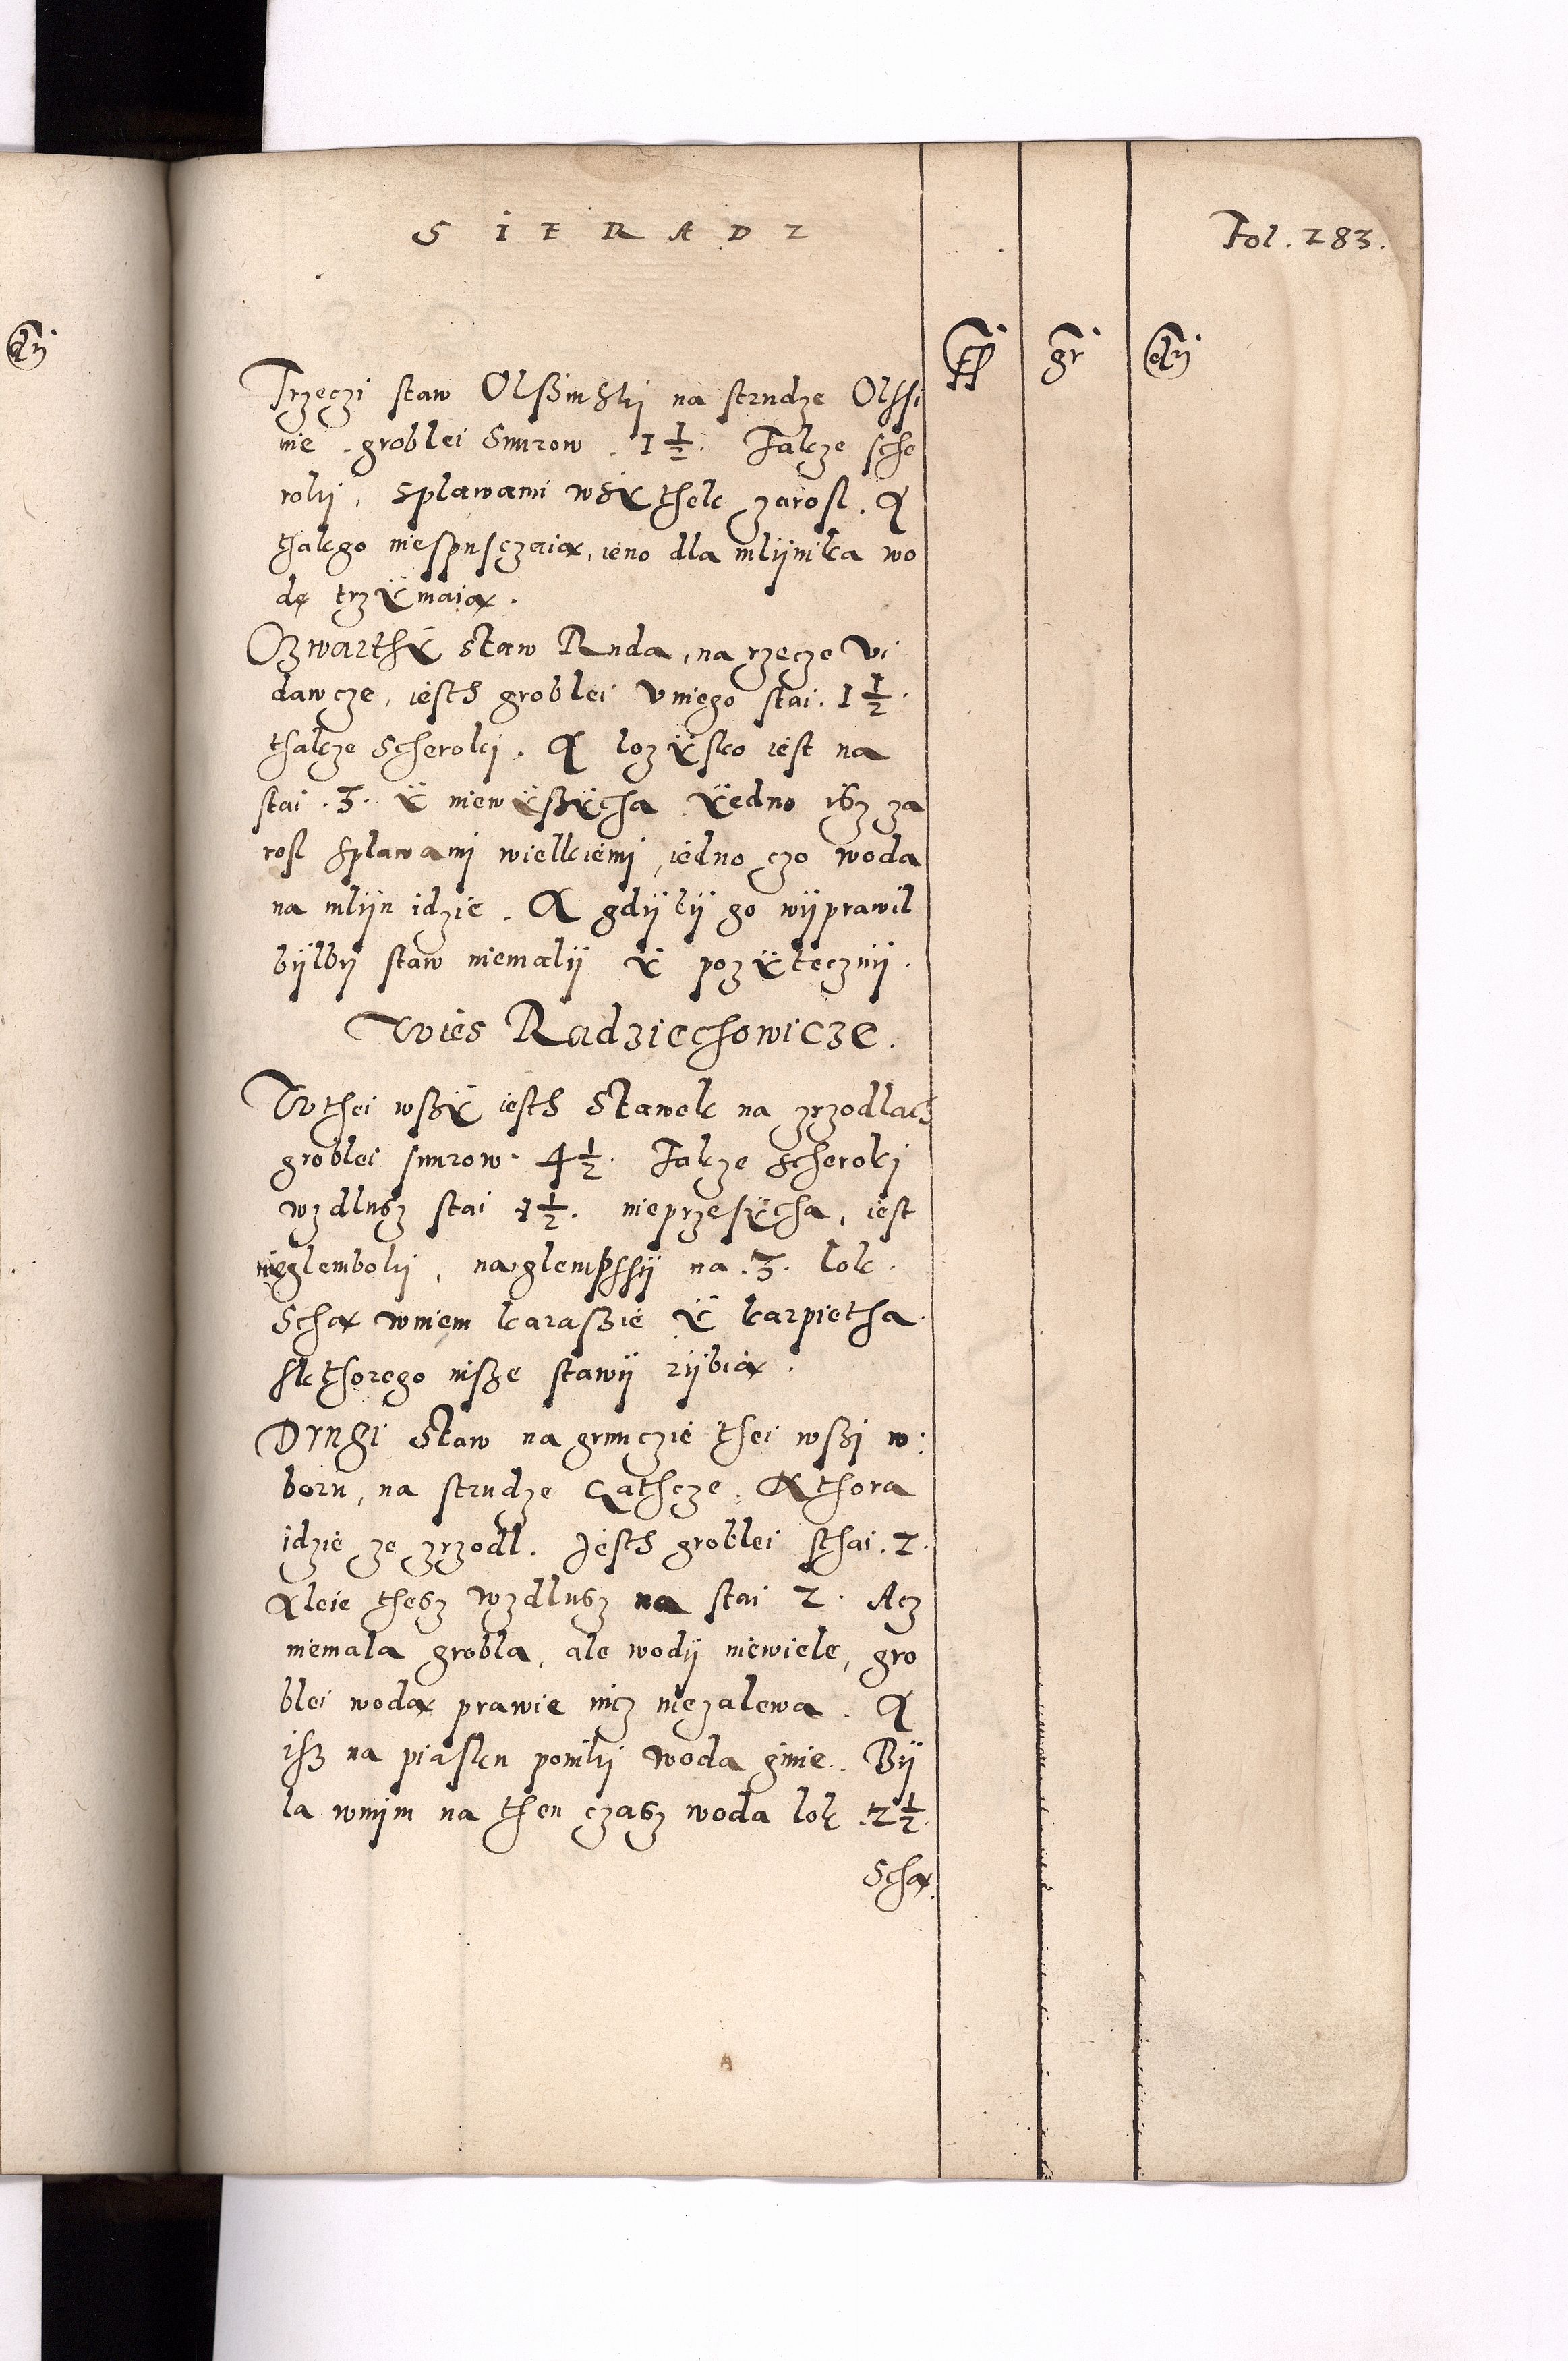 SIERADZ
Fol. 283.
gr
Trzeczi staw Olßinski na strudze Olssi
nie . groblei Snurow . 1 1/2 . Takze sche
roki, Splawami wsÿthek zarosl. A
thakgo niespusczaią, ieno dla mlÿnika wo
dę trzÿmaią .
Czwarthÿ Staw Ruda, na rzecze Vi
dawcze, iesth groblei vniego stai . 1 1/2 .
thakze Scheroki . A lozÿsko iest na
stai . 3 . ÿ niewÿßÿcha ÿedno isz za
rosl Splawami wielkiemi, iedno czo woda
na mlÿn idzie . A gdÿbÿ go wÿprawil
bÿlbÿ staw niemalÿ ÿ pozÿtecznÿ .
Wies Radziechowicze .
Wthei wßÿ iesth Stawek na zrzodlach
groblei snurow . 4 1/2 . Takze scheroki
wzdlusz stai 1 1/2 . nieprzesÿcha, iest
nieglemboki, naglempssÿ na . 3 . lok .
Schą wniem karaßie ÿ karpietha .
skthorego nisze stawÿ rÿbią .
Drugi Staw na grunczie thei wßi w
boru, na strudze Cathcze, Kthora
idzie ze zrzodl . Jesth groblei sthai . 2 .
Aleie thesz wzdlusz na stai 2 . Acz
niemala grobla, ale wodÿ niewiele, gro
blei wodą prawie nicz niezalewa . A
isz na piasku poniki woda ginie . Bÿ
la wnim na then czasz woda lok . 2 1/2 .
Schą